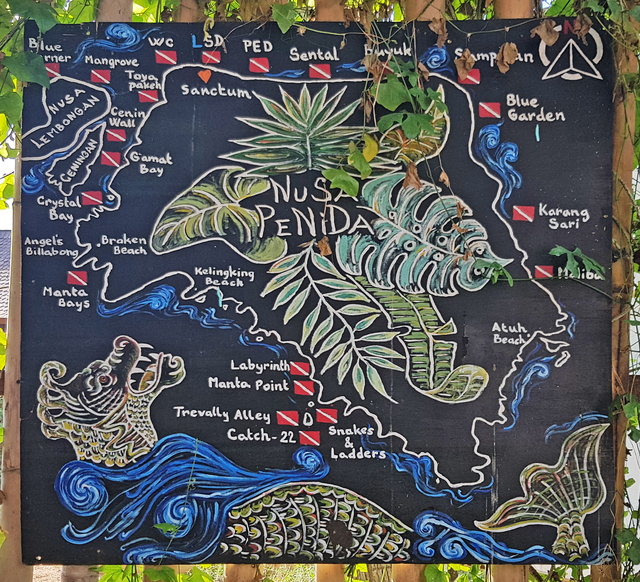 Blue
rner
Mangrove
WC
LSD
PED
Sental
Buyuk
N
Toya
pakeh
Sanctum
NUSA
LEMBONGAN
CENINGAN
Cenin
Wall
Gamat
Bay
Crystal
Bay
Blue
Garden
NUSA
PENIDA
Karang
Sari
Angel's
Billabong
Broken
Beach
Manta
Bays
Kelingking
Beach
Malibu
Atuh
Beach
Labyrinth
Manta Point
Trevally Alley
Catch-22
Snakes
&
Ladders